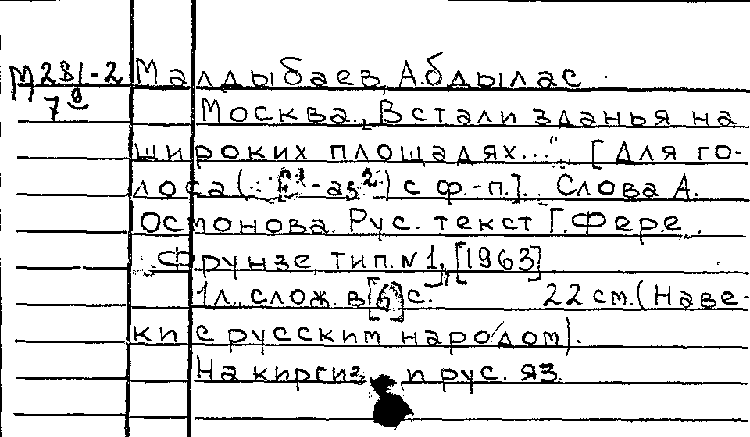 М 281-2 Малдыбаев, Абдылас.
7⁸ Москва. „Встали зданья на
широких площадях...“. [Для го-
лоса ( -as²) с ф.-п.]. Слова А.
Осмонова. Рус. текст Г. Фере.
Фрунзе, тип. N 1, [1963]
1л. слож. в [6] с. 22 см. (Наве-
ки с русским народом).
На киргиз. и рус. яз.